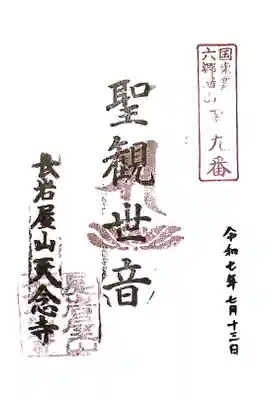 国東半島
六郷満山
第九番
聖観世音
長岩屋山天念寺
令和七年七月十三日